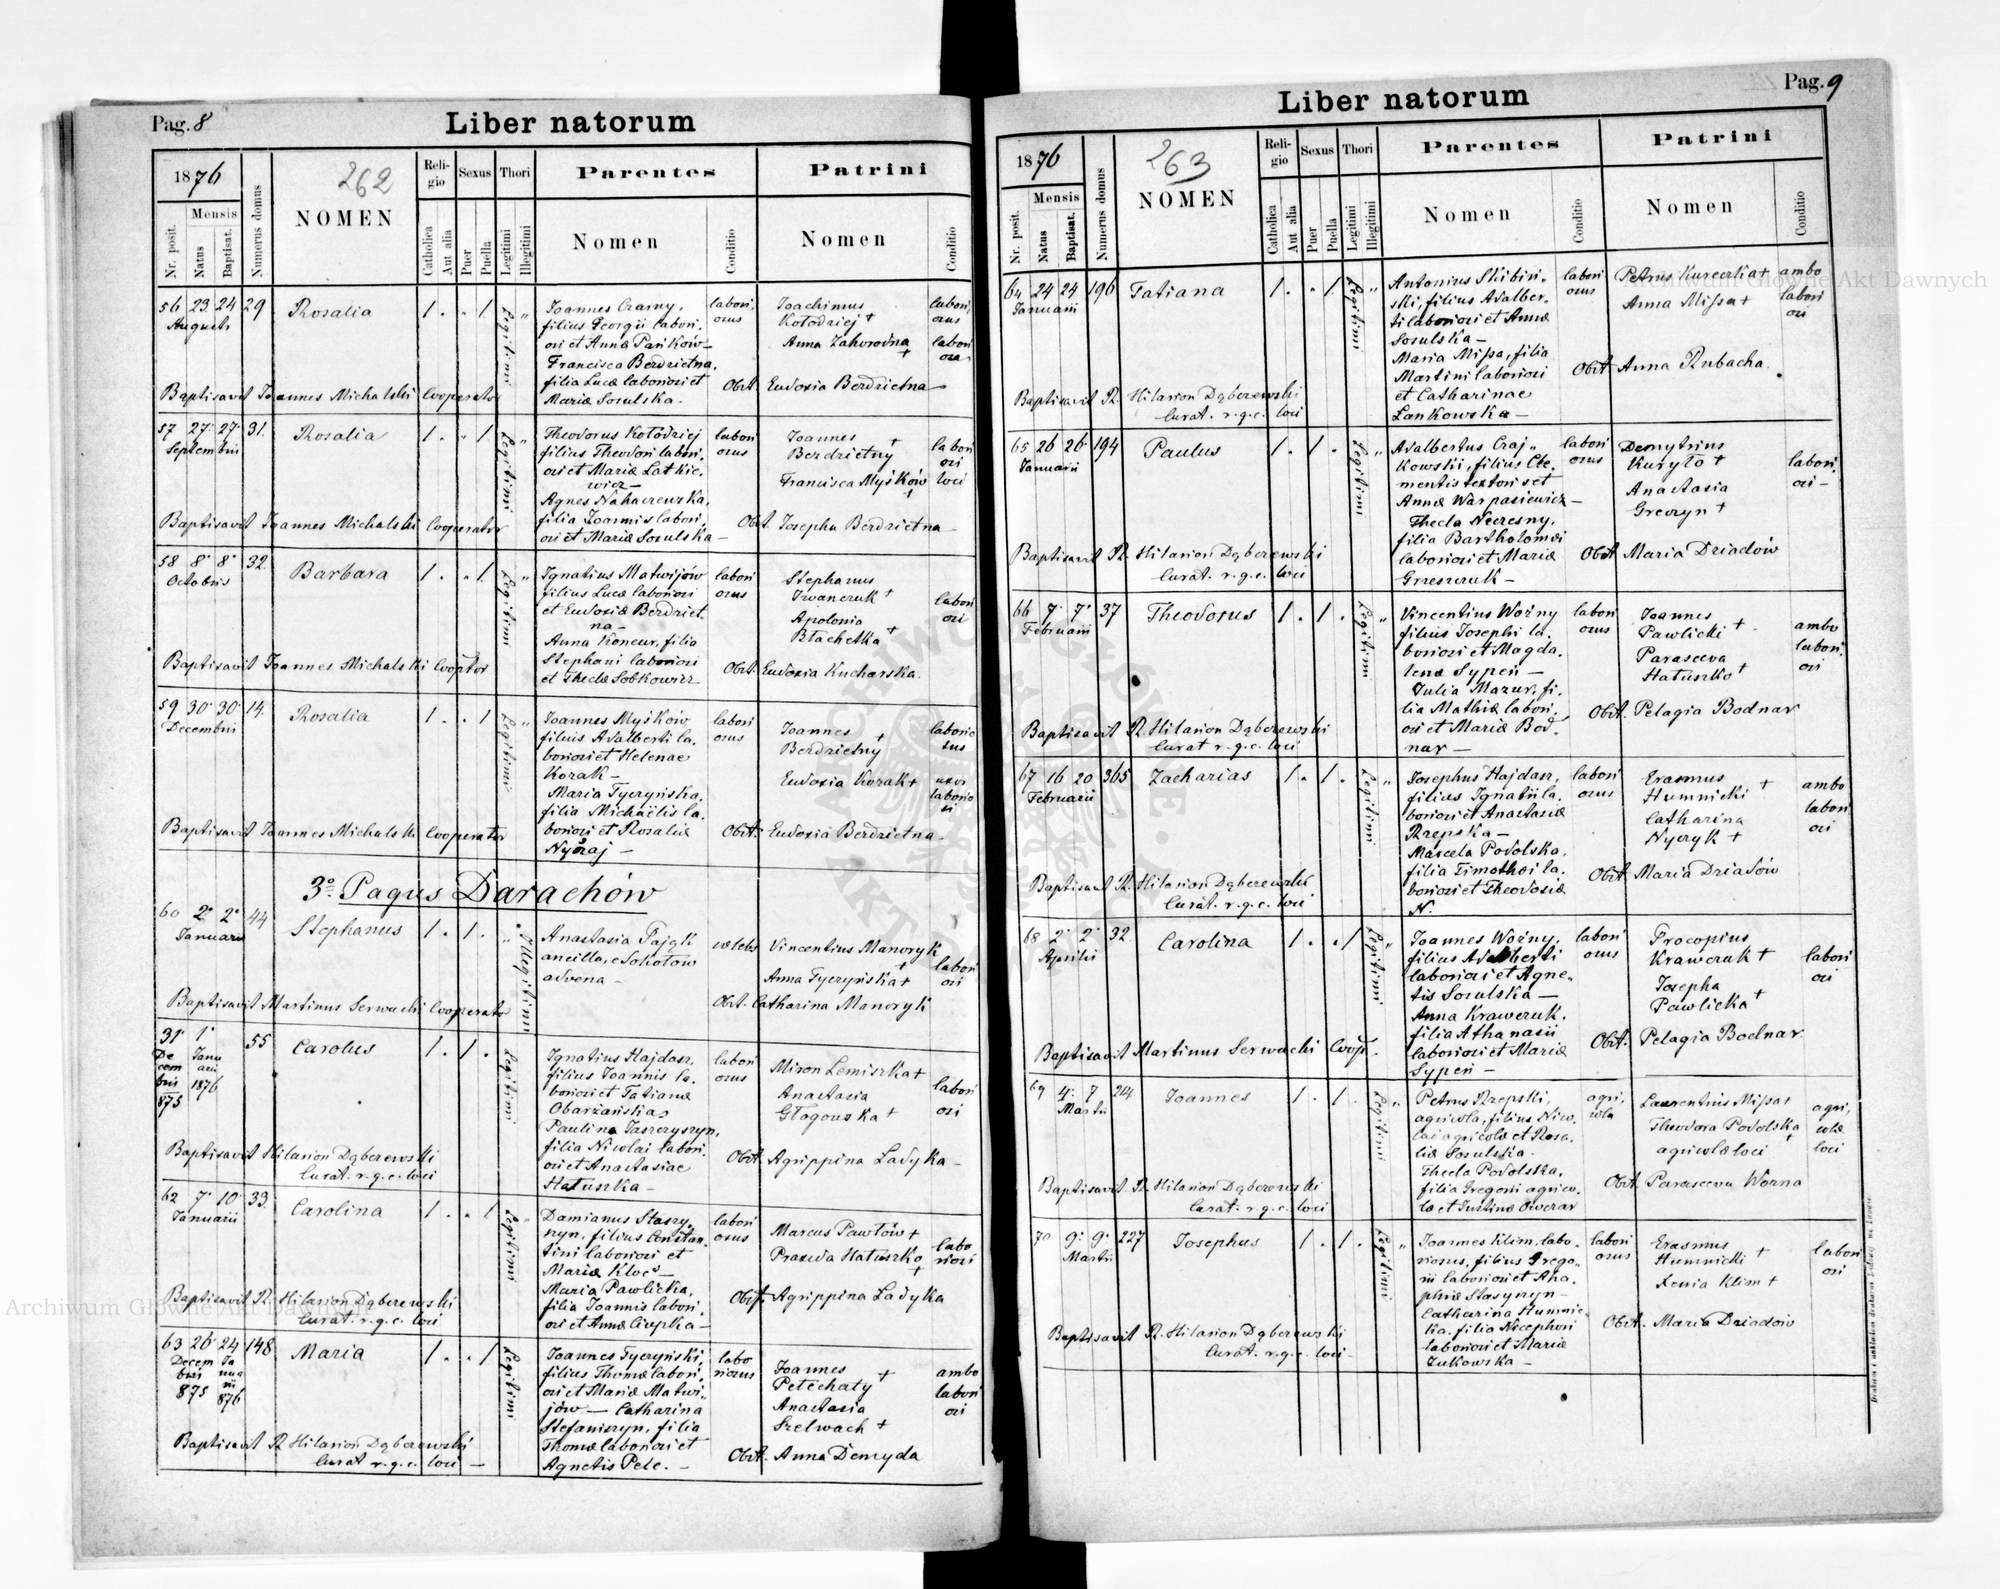 Pag. 8
Liber natorum
1876
262
Mensis
Nr. posit.
Natus
Baptisat.
Numerus domus
NOMEN
Religio
Catholica
Aut alia
Sexus
Puer
Puella
Thori
Legitimi
Illegitimi
Parentes
Nomen
Conditio
Patrini
Nomen
Conditio
56 23 24 29 Rosalia 1 . " 1 Legitimi "
Augusti
Joannes Czarny,
filius Georgii labori,
osi et Annæ Pańków —
Francisca Berdzietna,
filia Lucæ laboriosi et
Mariæ Sosulska -
labori,
osus
Joachimus
Kołodziej +
Anna Zahorodna +
labori,
osus
labori
osa
Baptisavit Joannes Michalski Cooperator
Obst. Eudoxia Berdzietna
57 27 27 31. Rosalia 1 . " 1 Legitimi "
Septembris
Theodorus Kołodziej
filius Theodori labori,
osi et Mariæ Latkie,
wicz —
Agnes Nahaczewska,
filia Joannis labori,
osi et Mariæ Sosulska —
labori
osus
Joannes +
Berdzietny
Francisca Myśków +
labori
osi
loci
Baptisavit Joannes Michalski Cooperator
Obst. Josepha Berdzietna
58 8 8 32. Barbara 1 . " 1 Legitimi "
Octobris
Ignatius Matwijów
filius Lucæ laboriosi
et Eudoxiæ Berdziet,
na —
Anna Koncur, filia
Stephani laboriosi
et Theclæ Sobkowicz
labori
osus
Stephanus
Iwanczuk +
Apolonia
Błachetka +
labori
osi
Baptisavit Joannes Michalski Cooptor
Obst. Eudoxia Kucharska.
59 30 30 14. Rosalia 1 . . 1 Legitimi "
Decembris
Joannes Myśków
filius Adalberti la,
boriosi et Helenae
Kozak —
Maria Tyczyńska,
filia Michaëlis la,
boriosi et Rosaliæ
labori
osus
Joannes +
Berdzietny
Eudoxia Kozak +
laborio
sus
uxor
laborio
si
Baptisavit Joannes Michalski Cooperator
Obst. Eudoxia Berdzietna
3° Pagus Darachów
60 2 2 44 Stephanus 1 . 1 . " Illegitimi
Januarii
Anastasia Pająk
ancilla, e Sokołow
advena —
cœlebs
Vincentius Manoryk +
Anna Tyczyńska +
labori
osi
Baptisavit Martinus Serwacki Cooperator
Obst. Catharina Manoryk
31 1 55 Carolus 1 . 1 . Legitimi
De
cem
bris
875
Janu
arii
1876
Ignatius Hajdasz,
filius Joannis la,
boriosi et Tatianæ
Obarzańska,
Paulina Jaszczyszyn,
filia Nicolai labori,
osi et Anastasiae
Hatuszka —
labori
osus
Miron Lemiszka +
Anastasia
Głogowska +
labori
osi
Baptisavit Hilarion Dąberewski
Curat. r.g.c. loci
Obst. Agrippina Ladyka
62 7 10 33. Carolina 1 . . 1 Legitimi "
Januarii
Damianus Staszy,
szyn, filius Constan,
tini laboriosi et
Mariæ Kloc —
Maria Pawlicka,
filia Joannis labori,
osi et Annæ Ciupka —
labori
osus
Marcus Pawłów +
Praxeda Hatuszko +
labo
riosi
Baptisavit R. Hilarion Dąberewski
Curat. r.g.c. loci
Obst. Agrippina Ladyka
63 26 24 148 Maria 1 . . 1 Legitimi
Decem
bris
875
Ja
nua
rii
876
Joannes Tyczyński,
filius Thomæ labori,
osi et Mariæ Matwi,
jów — Catharina
Stefaniszyn, filia
Thomæ laboriosi et
Agnetis Pele. —
labo
riosus
Joannes +
Petechaty
Anastasia
Szelwach +
ambo
labori
osi
Baptisavit R. Hilarion Dąberewski
Curat r.g.c. loci —
Obst. Anna Demyda
Pag. 9
Liber natorum
1876
263
Mensis
Nr. posit.
Natus
Baptisat.
Numerus domus
NOMEN
Religio
Catholica
Aut alia
Sexus
Puer
Puella
Thori
Legitimi
Illegitimi
Parentes
Nomen
Conditio
Patrini
Nomen
Conditio
64 24 24 196 Tatiana 1 . . 1 Legitimi "
Januarii
Antonius Skibiń,
ski, filius Adalber,
ti laboriosi et Annæ
Sosulska —
Maria Missa, filia
Martini laboriosi
et Catharinae
Lankowska —
labori
osus
Petrus Kureczka +
Anna Missa +
ambo
labori
osi
Baptisavit R. Hilarion Dąberewski
Curat. r.g.c. loci
Obst. Anna Rubacha.
65 26 26 194 Paulus 1 . 1 . Legitimi "
Januarii
Adalbertus Craj,
kowski, filius Cle,
mentis textoris et
Annæ Warpasiewicz —
Thecla Neczesny,
filia Bartholomæi
laboriosi et Mariæ
Grzeszczuk —
labori
osus
Demytrius
Kuryło +
Anastasia
Greczyn +
labori,
osi —
Baptisavit R. Hilarion Dąberewski
Curat. r.g.c. loci
Obst. Maria Dziadów
66 7 7 37 Theodorus 1 . 1 . Legitimi "
Februarii
Vincentius Woźny
filius Josephi la,
boriosi et Magda,
lenæ Sypeń —
Julia Mazur, fi,
lia Mathiæ labori,
osi et Mariæ Bod,
nar —
labori
osus
Joannes
Pawlicki +
Parasceva
Hatuszko +
ambo
labori,
osi
Baptisavit R. Hilarion Dąberewski
Curat r.g.c. loci
Obst. Pelagia Bodnar
67 16 20 365 Zacharias 1 . 1 . Legitimi "
Februarii
Josephus Hajdasz,
filius Ignatii la,
boriosi et Anastasiæ
Rzepska —
Marcela Podolska,
filia Timothei la,
boriosi et Theodosiæ
N.
labori
osus
Erasmus +
Humnicki
Catharina
Nyczyk +
ambo
labori
osi
Baptisavit R. Hilarion Dąberewski
Curat. r.g.c. loci
Obst. Maria Dziadów
68 2 2 32. Carolina 1 . . 1 Legitimi
Aprilis
Joannes Woźny,
filius Adalberti
laboriosi et Agne,
tis Sosulska —
Anna Krawczuk,
filia Athanasii
laboriosi et Mariæ
Sypeń —
labori
osus
Procopius
Krawczuk +
Josepha
Pawlicka +
labori
osi
Baptisavit Martinus Serwacki Coop.
Obst. Pelagia Bodnar
69 4 7 214. Joannes 1 . 1 . Legitimi "
Martii
Petrus Rzepski,
agricola, filius Nico,
lai agricolæ et Rosa,
liæ Sosulska.
Thecla Podolska,
filia Gregorii agrico,
læ et Justinæ Owczar
agri,
cola
Laurentius Missa +
Theodora Podolska +
agricolæ loci
agri,
colæ
loci
Baptisavit R. Hilarion Dąberewski
Curat. r.g.c. loci
Obst. Parasceva Woźna
70 9 9 227 Josephus 1 . 1 . Legitimi "
Martii
Joannes Klim, labo,
riosus, filius Grego,
rii laboriosi et Aga,
phiæ Stasyszyn —
Catharina Humnic,
ka, filia Nicephori
laboriosi et Mariæ
Zukowska —
labori
osus
Erasmus +
Humnicki
Xenia Klim +
labori
osi
Baptisavit R. Hilarion Dąberewski
Curat. r.g.c. loci
Obst. Maria Dziadów
Archiwum Główne Akt Dawnych
Archiwum Główne Akt Dawnych